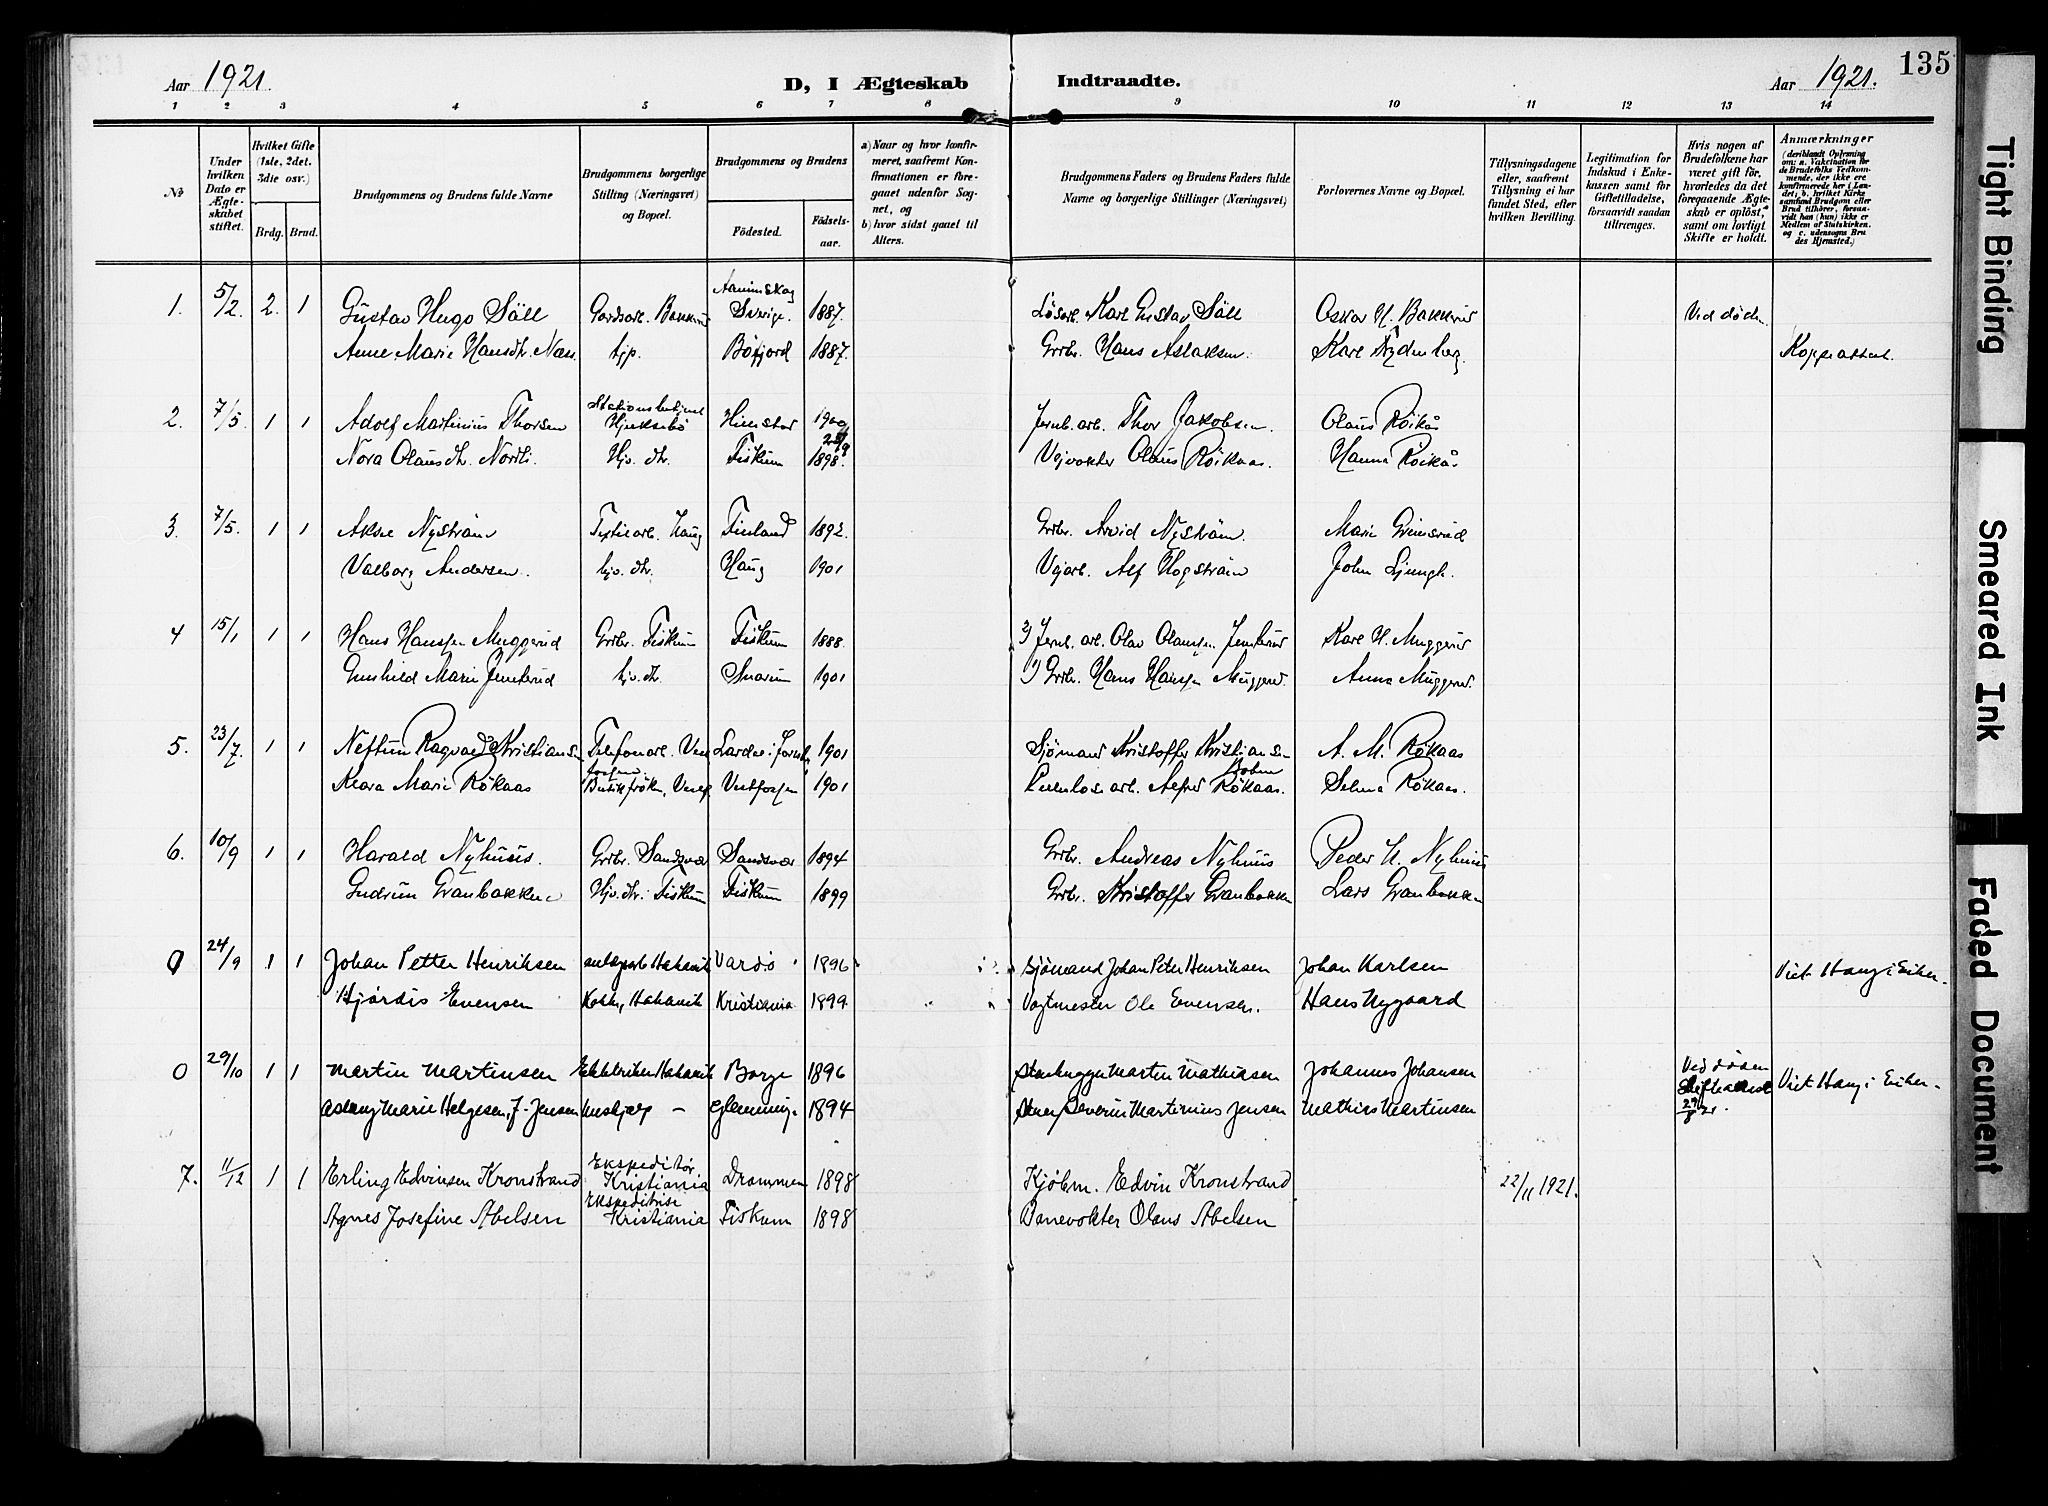 135
Aar 1921. D, I Ægteskab Indtraadte. Aar 1921.
1 2 3 4 5 6 7 8 9 10 11 12 13 14
№
Under hvilken Dato er Ægteskabet stiftet.
Hvilket Gifte (1ste, 2det, 3die osv.)
Brdg. Brud.
Brudgommens og Brudens fulde Navne
Brudgommens borgerlige Stilling (Næringsvei) og Bopæl.
Brudgommens og Brudens
Födested. Födsels-aar.
a) Naar og hvor konfirmeret, saafremt Konfirmationen er foregaaet udenfor Sognet, og
b) hvor sidst gaaet til Alters.
Brudgommens Faders og Brudens Faders fulde Navne og borgerlige Stillinger (Næringsvei)
Forlovernes Navne og Bopæl.
Tillysningsdagene eller, saafremt Tillysning ei har fundet Sted, efter hvilken Bevilling.
Legitimation for Indskud i Enkekassen samt for Giftetilladelse, forsaavidt saadan tiltrænges.
Hvis nogen af Brudefolkene har været gift før, hvorledes da det foregaaende Ægteskab er oplöst, samt om lovligt Skifte er holdt.
Anmærkninger
(deriblandt Oplysning om: a. Vakcination for de Brudefolks Vedkommende, der ikke ere konfirmerede her i Landet; b. hvilket Kirkesamfund Brudgom eller Brud tilhører, forsaavidt han (hun) ikke er Medlem af Statskirken, og c. udensogns Brudes Hjemsted.)
1. 5/2. 2. 1 Gustav Hugo Säll Gardsarb. Sverige. 1887. Karl Gustav Säll Oskar H. Ved døden
Anne Marie Hansdtr. Næss Bøfjord 1887. Grbr. Hans Aslaksen. Karl Koppeattest.
2. 7/5. 1 1 Adolf Martinius Thorsen Stationsbetjent Hjuksebø 1900 Jernb. arb. Thor Jakobsen. Olaus Röikås
Nora Olausdtr. Nordli. Hjv. dtr. Fiskum 1898. 23/9 Vejvokter Olaus Röikaas. Hanna Röikås
3. 7/5. 1 1 Nyström Haug Finland 1892. Grbr. Arvid Nyström. Marie Grimsrud
Valborg Andersen. hjv. dtr. Haug 1901 Vejarb. Alf Hogström John
4 15/1 1 1 Hans Hansen Muggerud Grbr. Fiskum Fiskum 1888. 2) Jernb. arb. Olav Olausen Karl H. Muggerud
Gunhild Marie hjv. dtr. Snarum 1901 1) Grbr. Hans Hansen Muggerud. Anna Muggerud.
5. 23/7. 1 1 Ragvald Kristiansen Telefonarb. 1901 Sjømand Kristoffer Kristiansen A. M. Rökaas
Klara Marie Rökaas Vestfossen 1901 Alfred Rökaas. Selma Rökaas.
6. 10/9 1 1 Harald Nyhuus. Grbr. Sandsvær Sandsvær 1894 Grbr. Andreas Nyhuus Peder H. Nyhuus
Gudrun Granbakken Hjv. dtr. Fiskum Fiskum 1899 Grbr. Kristoffer Granbakken Lars Granbakken
0 24/9 1 1 Johan Petter Henriksen Hakavik Vardö 1896 Sjömand Johan Peter Henriksen Johan Karlsen Viet Haug i Eiker.
Hjördis Evensen Hakavik Kristiania 1899 Vagtmester Ole Evensen. Hans Nygaard
0 29/10 1 1 Martin Martinsen Elektriker Hakavik Borge 1896 Martin Mathiasen Johannes Johansen Ved döden Viet Haug i Eiker.
Aslaug Marie Helgesen, f. Jensen Glemminge 1894 Severin Martinius Jensen Mathias Martinsen
7. 11/12 1 1 Erling Edvinsen Kronstrand Ekspeditør. Kristiania Drammen 1898 Kjøbm. Edvin Kronstrand 22/11 1921.
Agnes Josefine Abelsen Ekspeditrise Kristiania Fiskum 1898 Banevokter Olaus Abelsen
Tight Binding
Smeared Ink
Faded Document